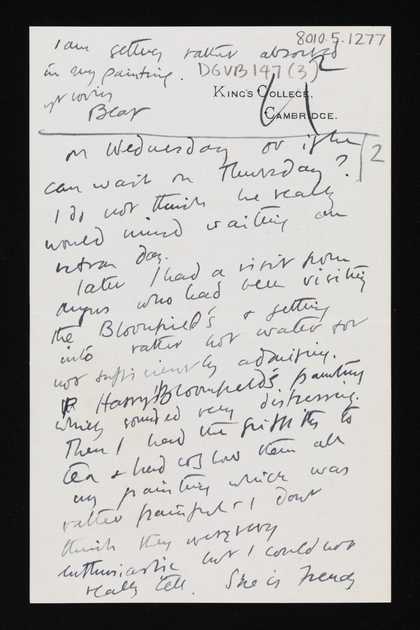 I am getting rather absorbed
in my painting. DGVB 147 (3)
yr loving
Bear
8010.5.1277
2
KING'S COLLEGE,
CAMBRIDGE.
2
on Wednesday or if he
can wait on Thursday?
I do not think he really
would mind waiting an
extra day.
Later I had a visit from
Angus who had been visiting
the Bloomfield's & getting
into rather hot water for
not sufficiently admiring.
Harry Bloomfield's painting
which sounded very distressing.
Then I had the Griffiths to
tea & had to show them all
my painting which was
rather painful - I dont
think they were very
enthusiastic but I could not
really tell. She is French